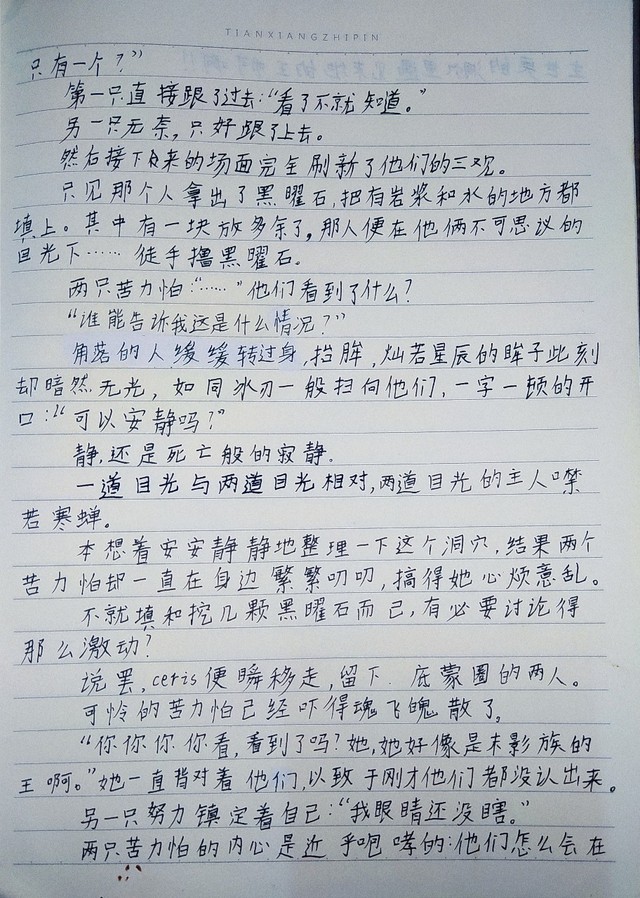 TIANXIANGZHIPIN
只有一个？”
第一只直接跟了过去：“看了不就知道。”
另一只无奈，只好跟了上去。
然后接下来的场面完全刷新了他们的三观。
只见那个人拿出了黑曜石，把有岩浆和水的地方都
填上。其中有一块放多余了，那人便在他俩不可思议的
目光下……徒手撸黑曜石。
两只苦力怕：“……”他们看到了什么？
“谁能告诉我这是什么情况？”
角落的人缓缓转过身，抬眸，灿若星辰的眸子此刻
却暗然无光，如同冰刃一般扫向他们，一字一顿的开
口：“可以安静吗？”
静，还是死亡般的寂静。
一道目光与两道目光相对，两道目光的主人噤
若寒蝉。
本想着安安静静地整理一下这个洞穴，结果两个
苦力怕却一直在身边繁繁叨叨，搞得她心烦意乱。
不就填和挖几颗黑曜石而已，有必要讨论得
那么激动？
说罢，ceris便瞬移走，留下底蒙圈的两人。
可怜的苦力怕已经吓得魂飞魄散了。
“你你你你看，看到了吗？她，她好像是末影族的
王啊。”她一直背对着他们，以致于刚才他们都没认出来。
另一只努力镇定着自己：“我眼睛还没瞎。”
两只苦力怕的内心是近乎咆哮的：他们怎么会在